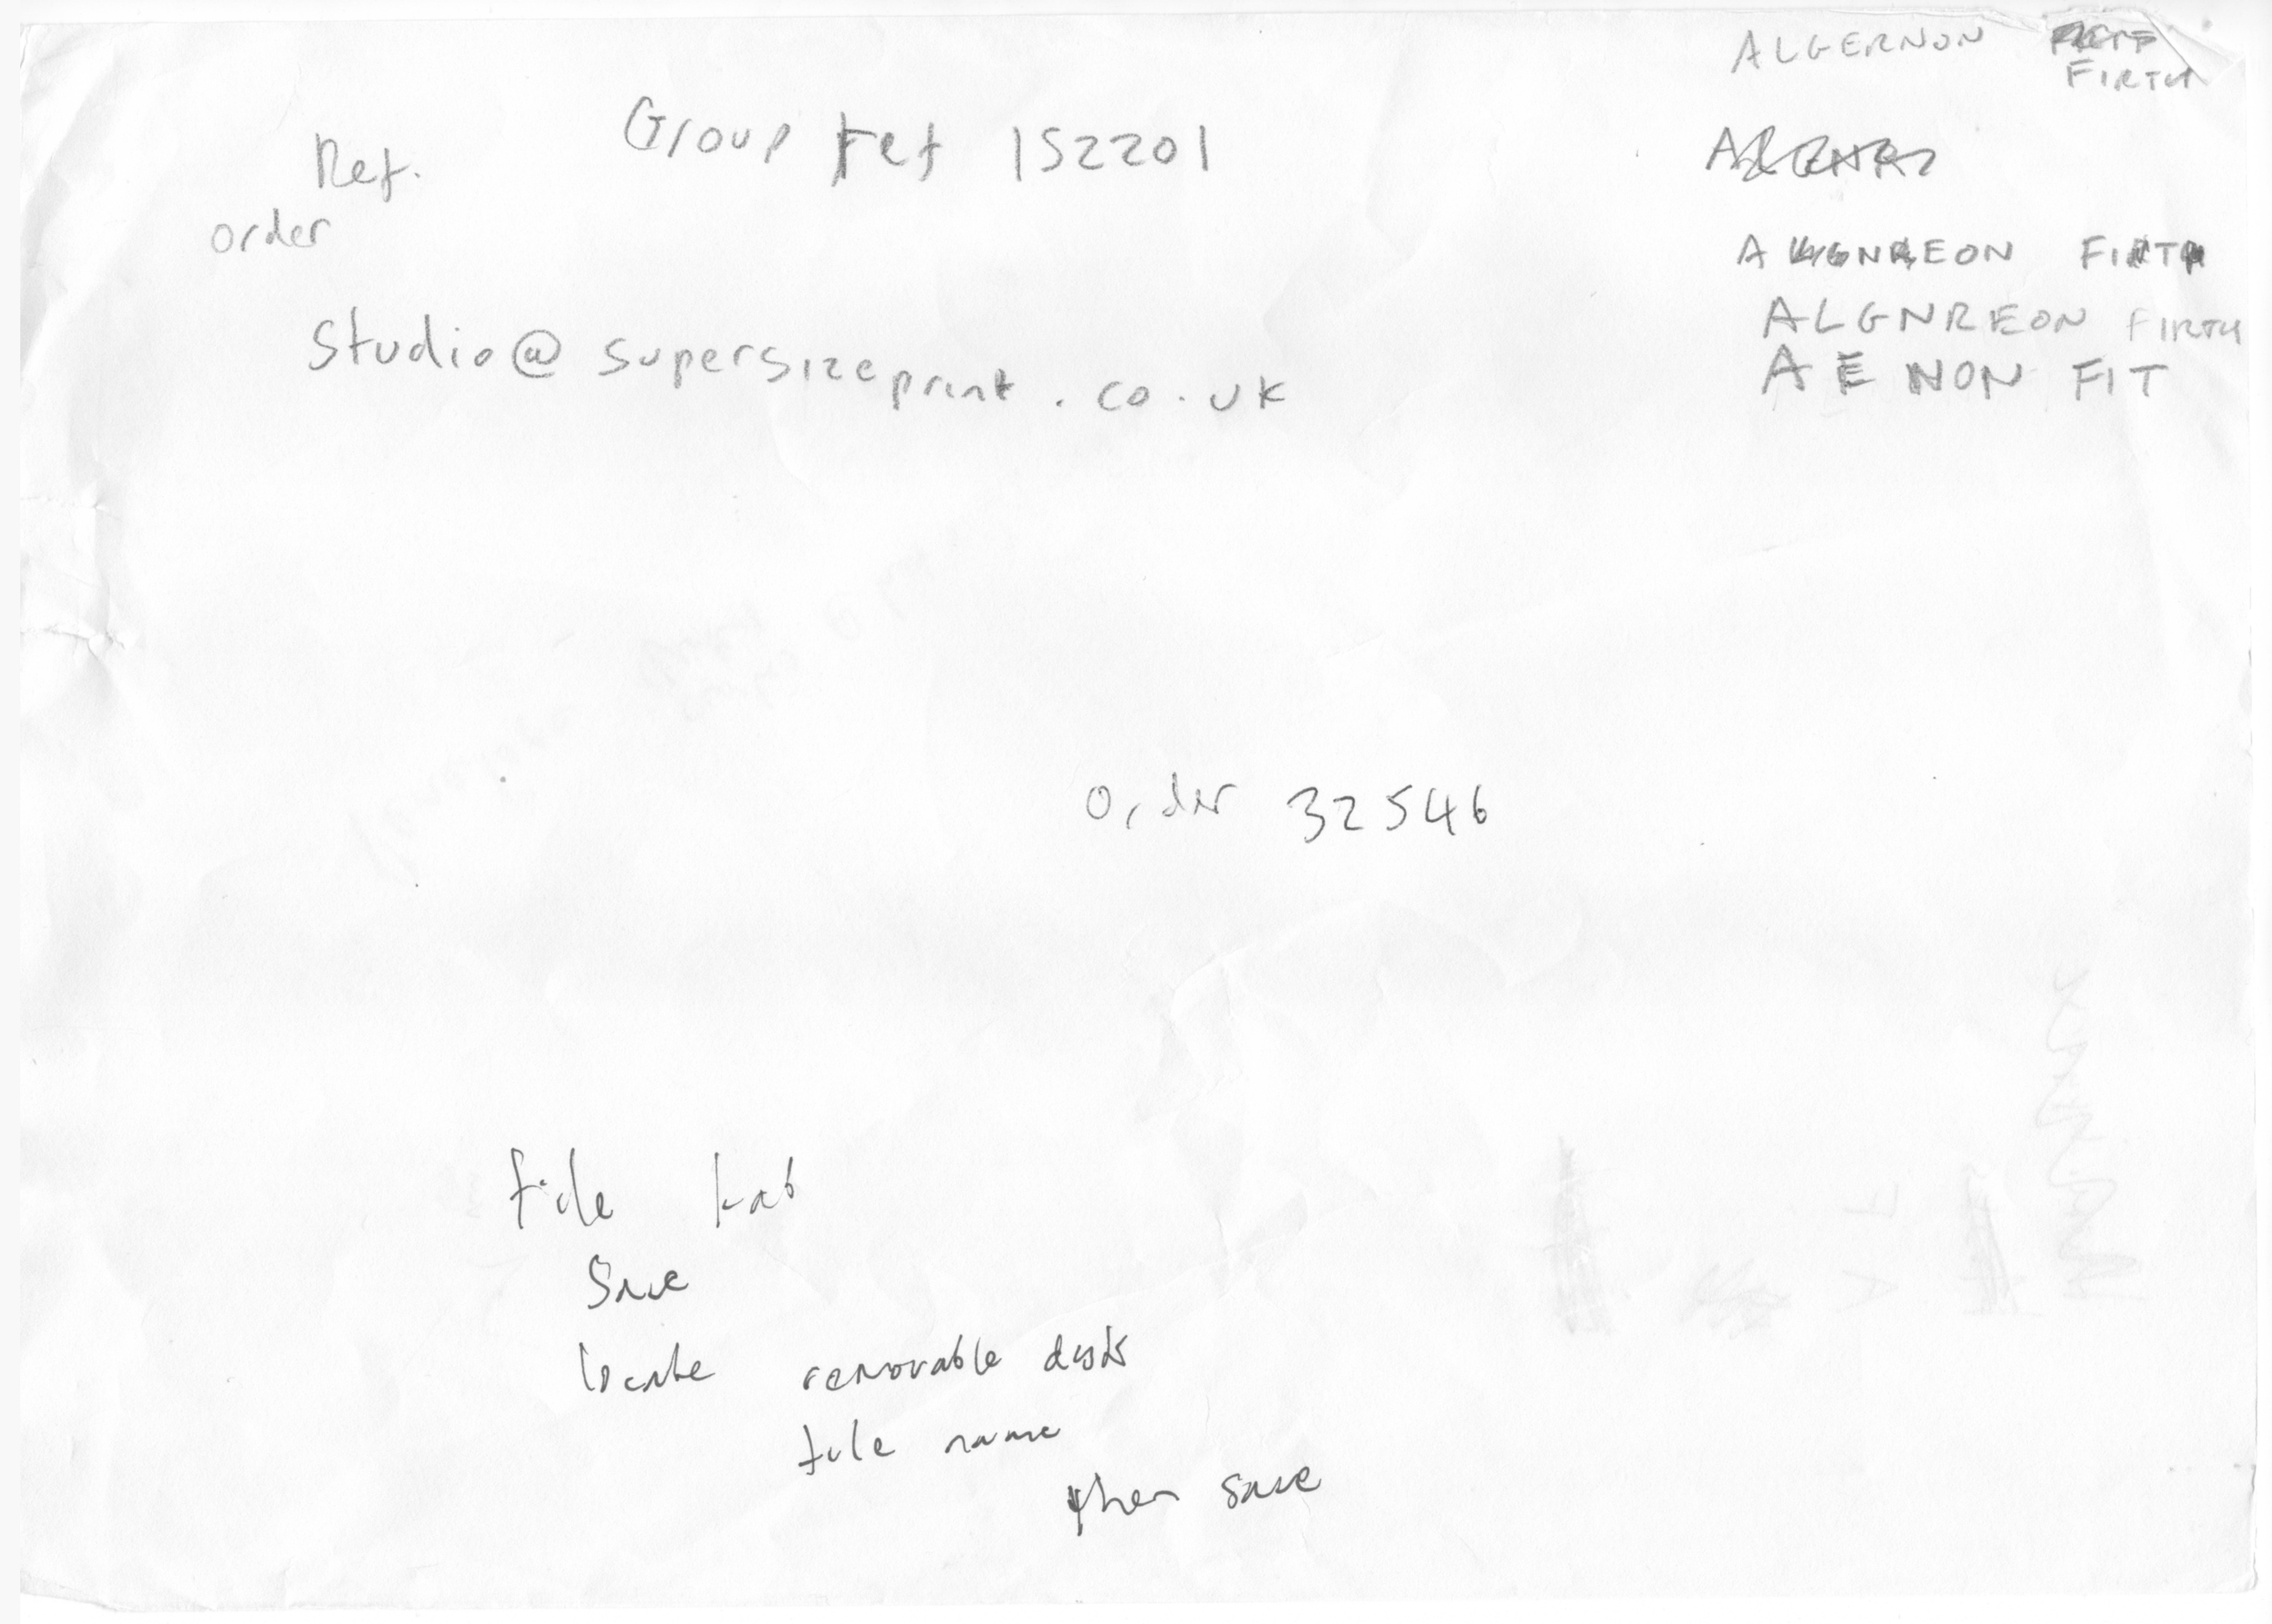 ALGERNON
FIRTH
Group ref 152201
Ref.
order
ALGNREON FIRTH
studio@supersizeprint.co.uk
ALGNREON FIRTH
A E NON FIT
order 32546
file tab
Save
locate removable disk
file name
then save